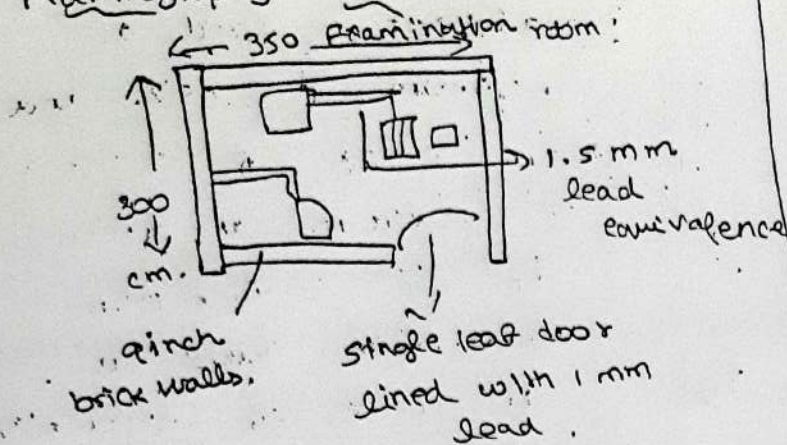 350 Examination room:
300
cm.
1.5 mm
lead
equivalence
9inch
brick walls.
single leaf door
lined with 1 mm
lead.